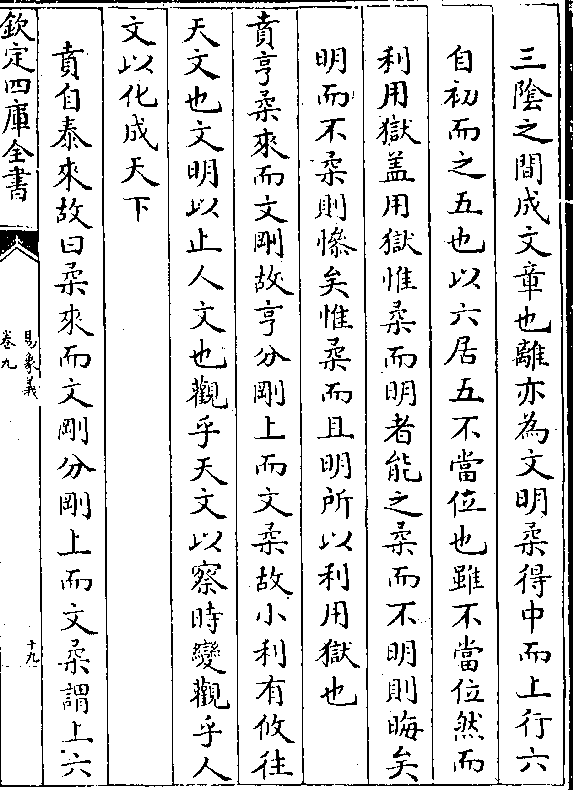 三陰之間成文章也離亦為文明柔得中而上行六
自初而之五也以六居五不當位也雖不當位然而
利用獄盖用獄惟柔而明者能之柔而不明則晦矣
明而不柔則慘矣惟柔而且明所以利用獄也
賁亨柔來而文剛故亨分剛上而文柔故小利有攸往
天文也文明以止人文也觀乎天文以察時變觀乎人
文以化成天下
賁自泰來故曰柔來而文剛分剛上而文柔謂上六
欽定四庫全書
易象義
卷九
十九